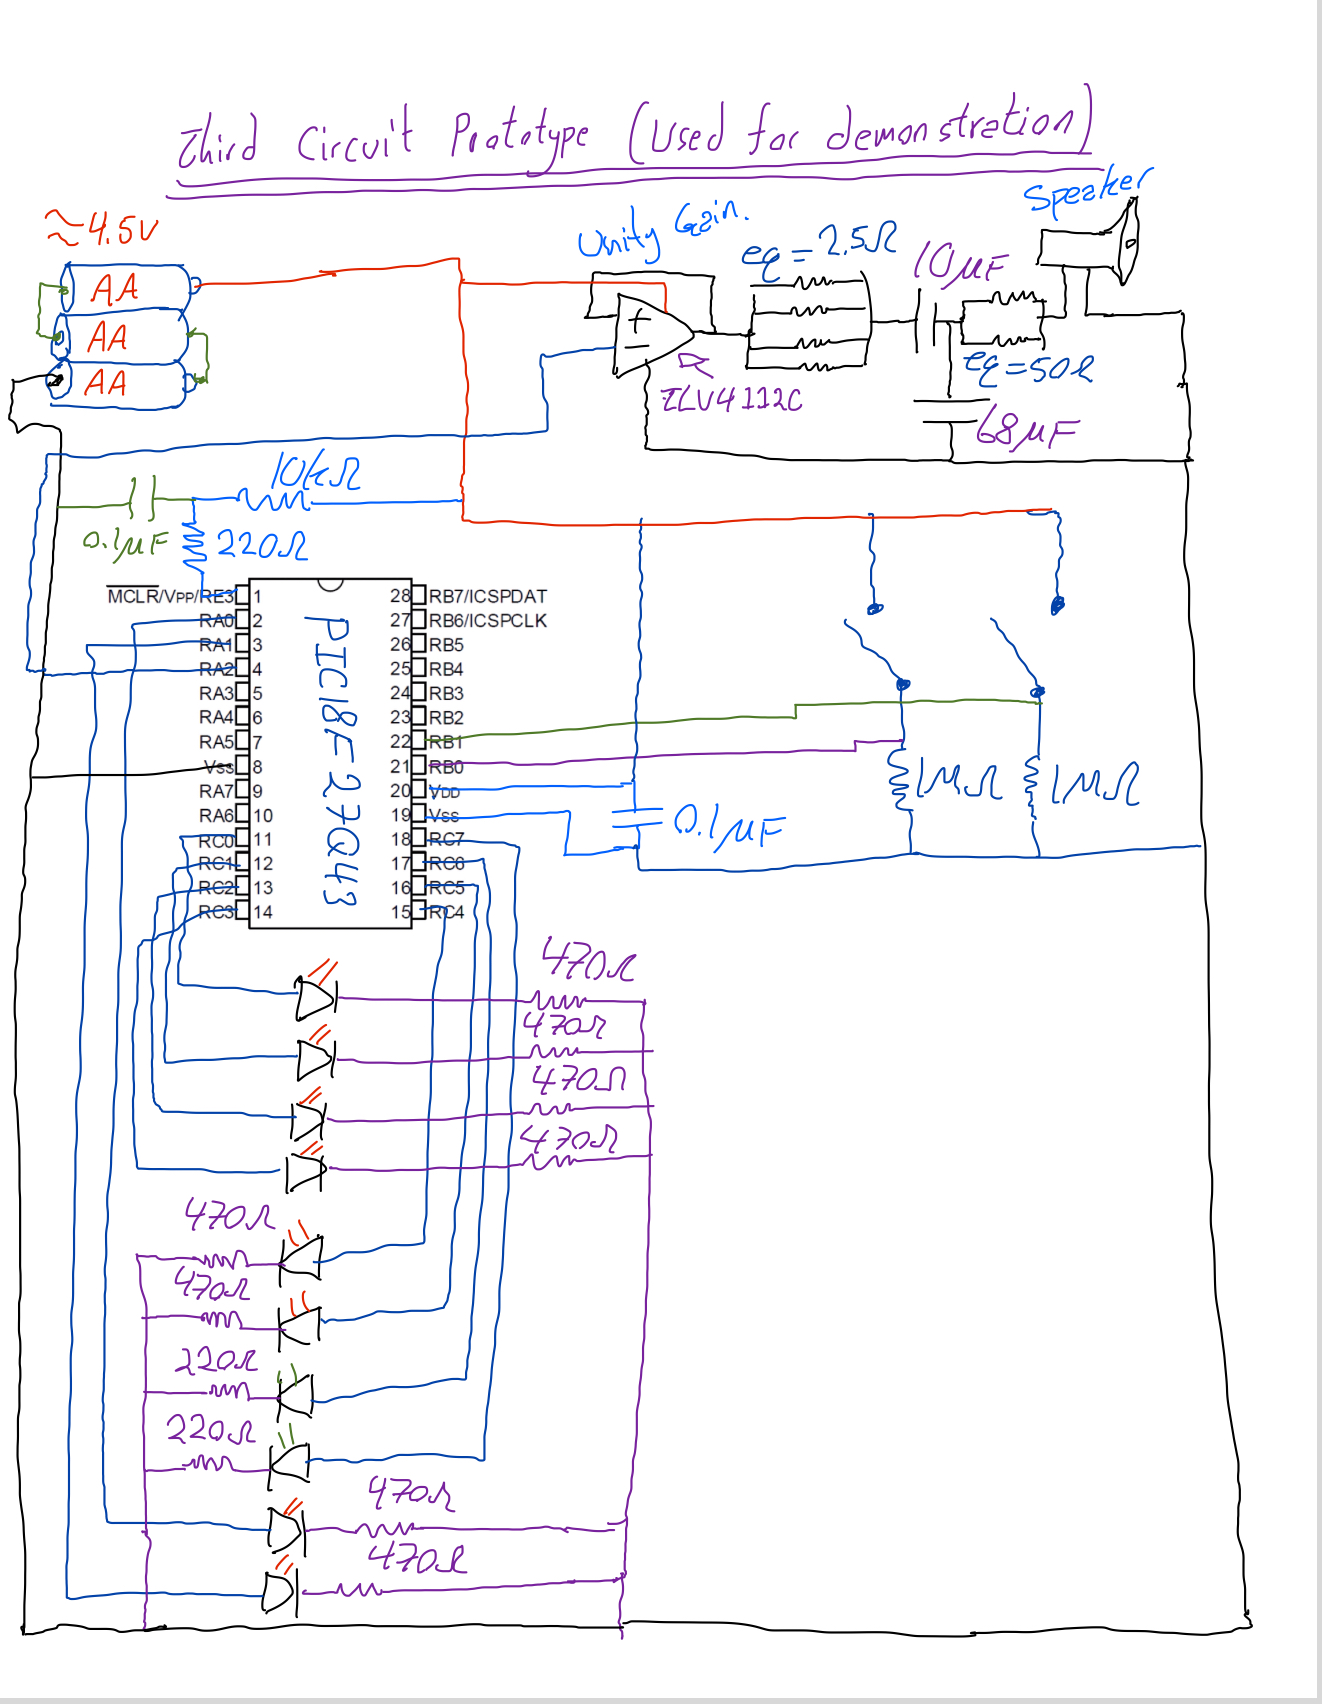 Third Circuit Prototype (Used for demonstration)
Speaker
≈4.5V
Unity Gain.
eq = 2.5Ω
10μF
AA
AA
AA
+
−
eq = 50Ω
TLV4112C
68μF
10kΩ
0.1μF
220Ω
MCLR/VPP/RE3 1
RA0 2
RA1 3
RA2 4
RA3 5
RA4 6
RA5 7
Vss 8
RA7 9
RA6 10
RC0 11
RC1 12
RC2 13
RC3 14
PIC18F27Q43
28 RB7/ICSPDAT
27 RB6/ICSPCLK
26 RB5
25 RB4
24 RB3
23 RB2
22 RB1
21 RB0
20 VDD
19 Vss
18 RC7
17 RC6
16 RC5
15 RC4
1MΩ
1MΩ
0.1μF
470Ω
470Ω
470Ω
470Ω
470Ω
470Ω
220Ω
220Ω
470Ω
470Ω